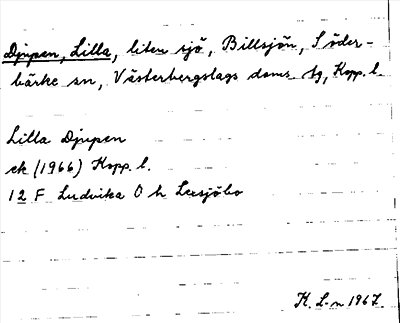 Djupen, Lilla, liten sjö, Billsjön, Söder-
bärke sn, Västerbergslags doms. tg, Kopp. l.
Lilla Djupen
ek (1966) Kopp. l.
12 F Ludvika O h Lersjöbo
K. L-n 1967.